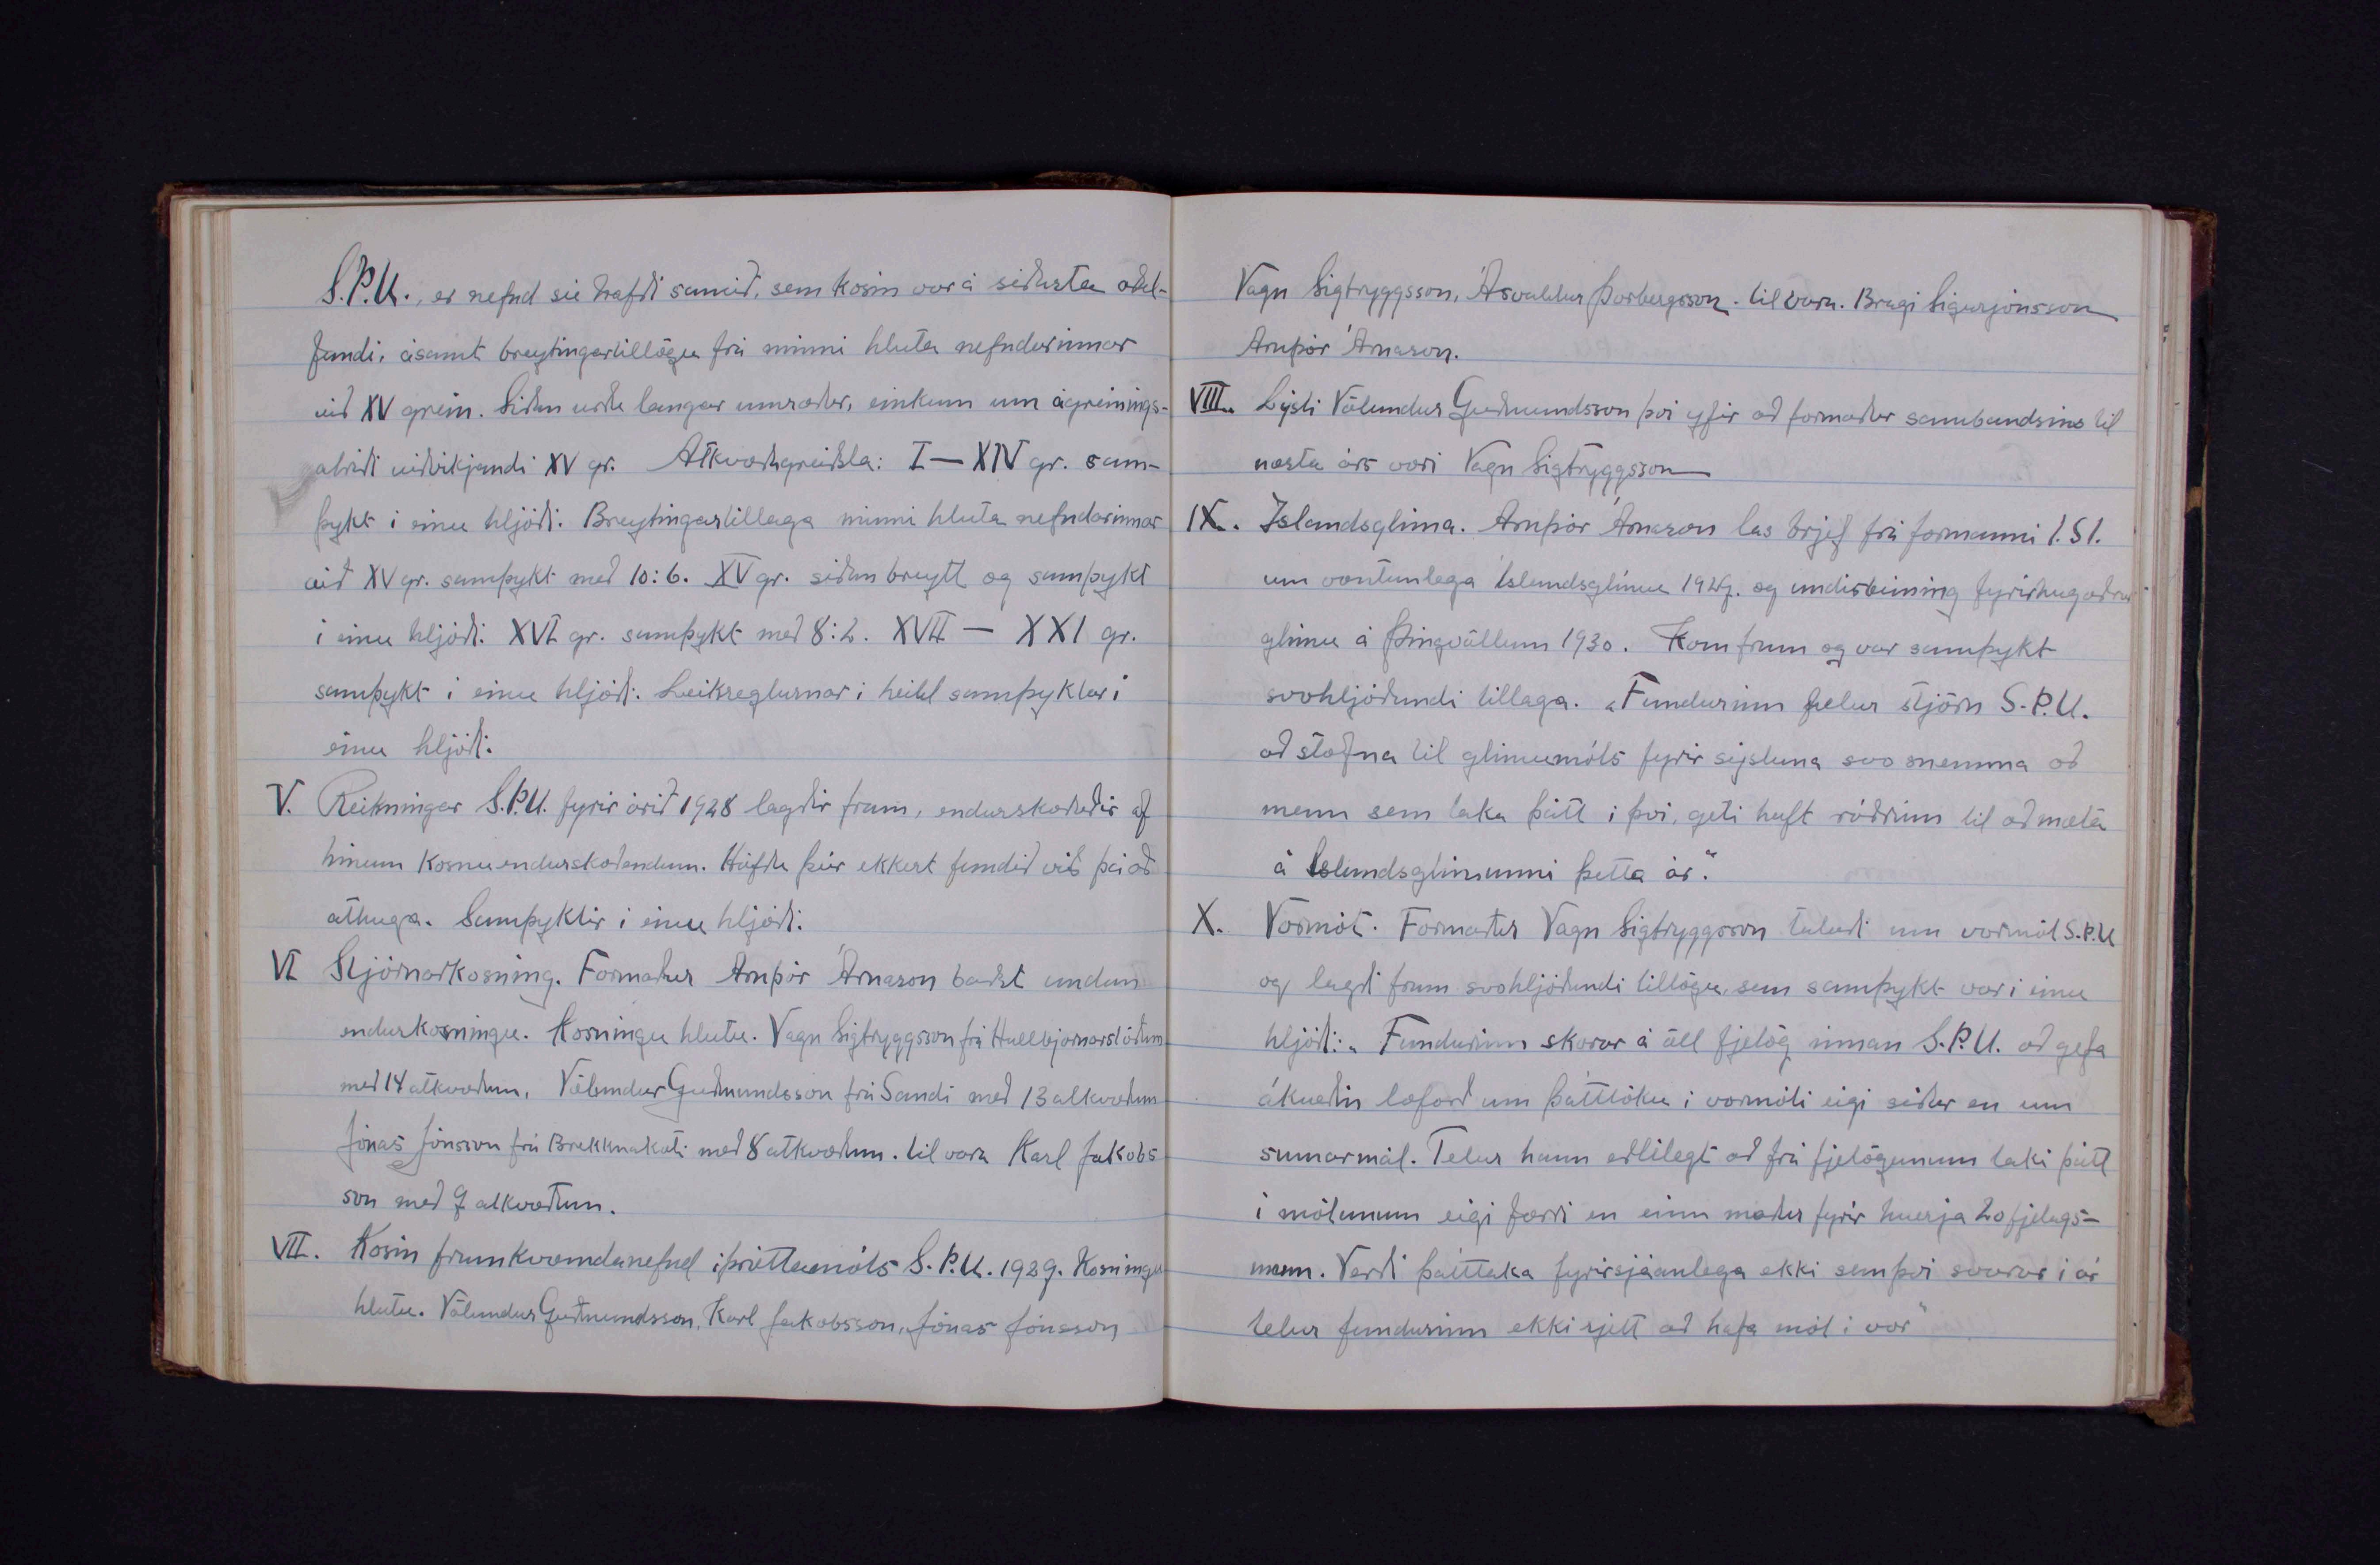 S.Þ.U., er nefnd sú hafði samið, sem kosin var á síðasta aðal-
fundi, ásamt breytingartillögu frá minni hluta nefndarinnar
við XV grein. Síðan urðu langar umræður, einkum um ágreinings-
atriði viðvíkjandi XV gr. Atkvæðagreiðsla: I — XIV gr. sam-
þykt í einu hljóði. Breytingartillaga minni hluta nefndarinnar
við XV gr. samþykt með 10:6. XV gr. síðan breytt og samþykt
í einu hljóði. XVI gr. samþykt með 8:2. XVII — XXI gr.
samþykt í einu hljóði. Leikreglurnar í heild samþyktar í
einu hljóði.
V. Reikningar S.Þ.U. fyrir árið 1928 lagðir fram, endurskoðaðir af
hinum kosnu endurskoðendum. Höfðu þeir ekkert fundið við þá að
athuga. Samþyktir í einu hljóði.
VI Stjórnarkosning. Formaður Arnþór Árnason baðst undan
endurkosningu. Kosningu hlutu. Vagn Sigtryggsson frá Hallbjarnarstöðum
með 14 atkvæðum, Völundur Guðmundsson frá Sandi með 13 atkvæðum
Jónas Jónsson frá Brekknakoti með 8 atkvæðum. til vara Karl Jakobs
son með 7 atkvæðum.
VII. Kosin framkvæmdanefnd íþróttamóts S.Þ.U. 1929. Kosningu
hlutu. Völundur Guðmundsson, Karl Jakobsson, Jónas Jónsson
Vagn Sigtryggsson, Ásvaldur Þorbergsson. til vara. Bragi Sigurjónsson
Arnþór Árnason.
VIII. Lýsti Völundur Guðmundsson því yfir að formaður sambandsins til
næsta árs væri Vagn Sigtryggsson
IX. Íslandsglíma. Arnþór Árnason las brjef frá formanni Í.S.Í.
um væntanlega Íslandsglímu 1929. og undirbúning fyrirhugaðrar
glímu á Þingvöllum 1930. Kom fram og var samþykt
svohljóðandi tillaga. „Fundurinn felur stjórn S.Þ.U.
að stofna til glímumóts fyrir sýsluna svo snemma að
menn sem taka þátt í því, geti haft ráðrúm til að mæta
á Íslandsglímunni þetta ár."
X. Vormót. Formaður Vagn Sigtryggsson talaði um vormót S.Þ.U
og lagði fram svohljóðandi tillögu, sem samþykt var í einu
hljóði: „Fundurinn skorar á öll fjelög innan S.Þ.U. að gefa
ákveðin loforð um þátttöku í vormóti eigi síðar en um
sumarmál. Telur hann eðlilegt að frá fjelögunum taki þátt
í mótunum eigi færri en einn maður fyrir hverja 20 fjelags-
menn. Verði þátttaka fyrirsjáanlega ekki sem því svarar í ár
telur fundurinn ekki rjett að hafa mót í vor"